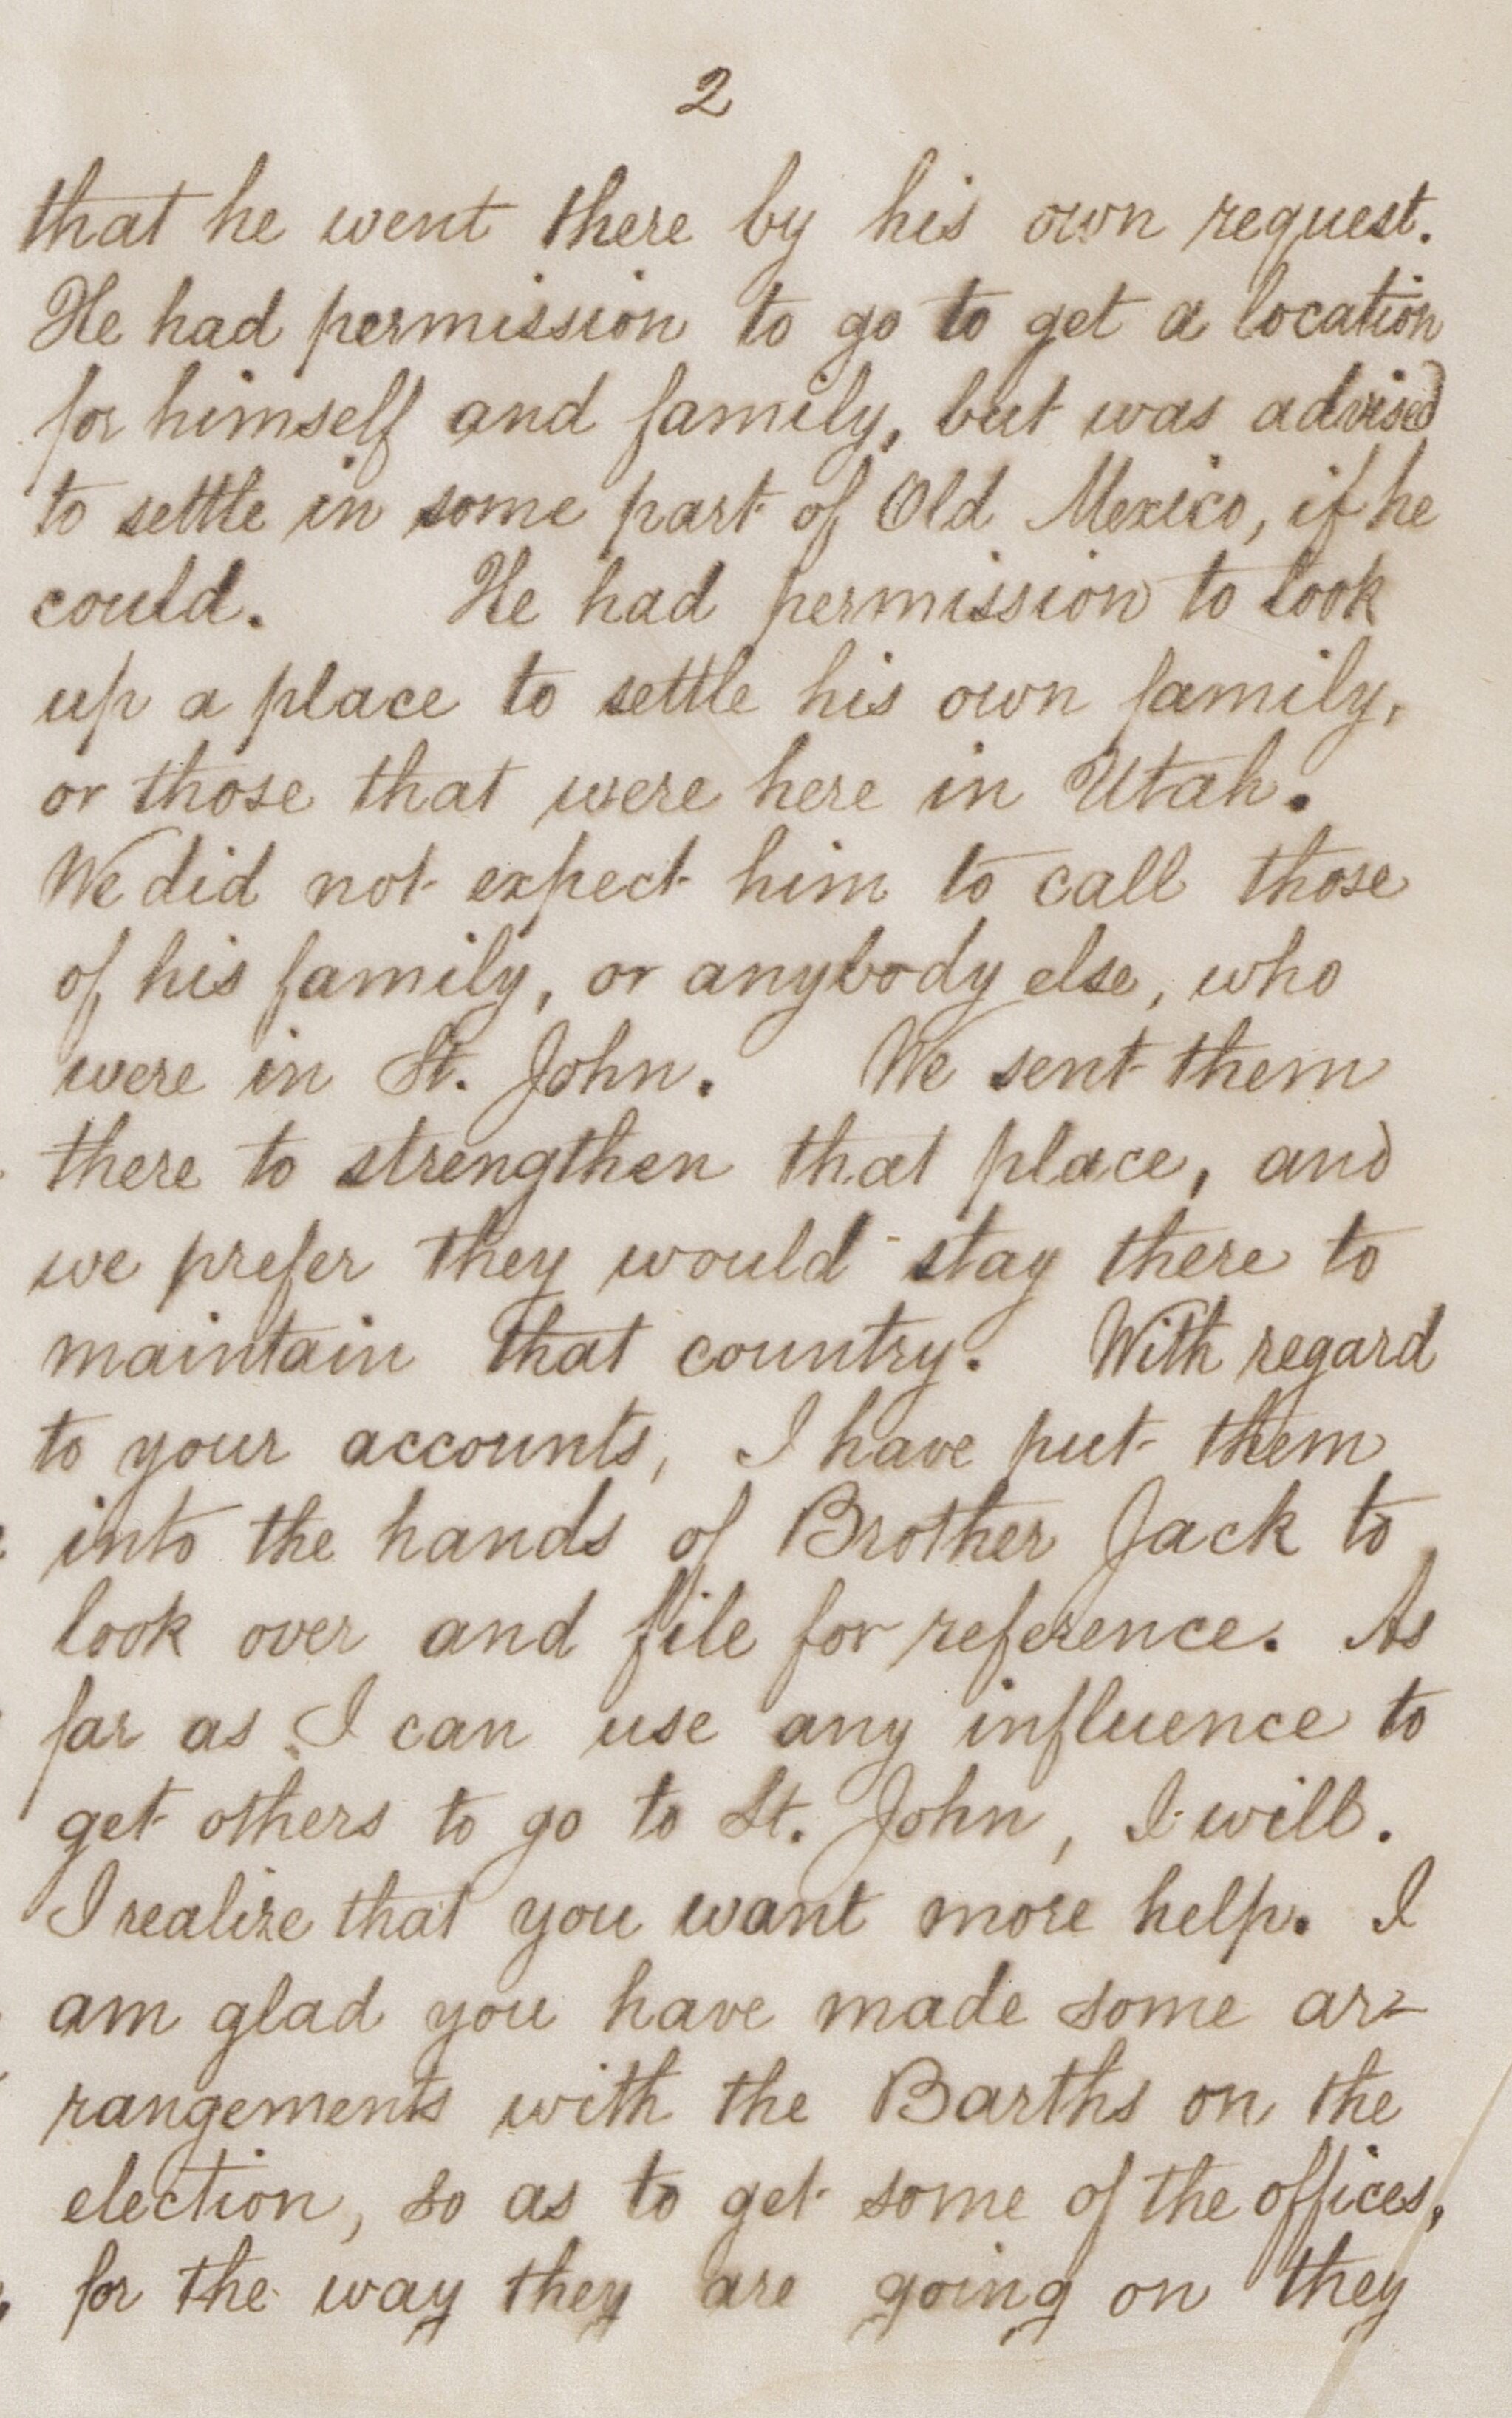 2
that he went there by his own request.
He had permission to go to get a location
for himself and family, but was advised
to settle in some part of Old Mexico, if he
could. He had permission to look
up a place to settle his own family,
or those that were here in Utah.
We did not expect him to call those
of his family, or anybody else, who
were in St. John. We sent them
there to strengthen that place, and
we prefer they would stay there to
maintain that country. With regard
to your accounts, I have put them
into the hands of Brother Jack to
look over and file for reference. As
far as I can use any influence to
get others to go to St. John, I will.
I realize that you want more help. I
am glad you have made some ar-
rangements with the Barths on the
election, so as to get some of the offices,
for the way they are going on they